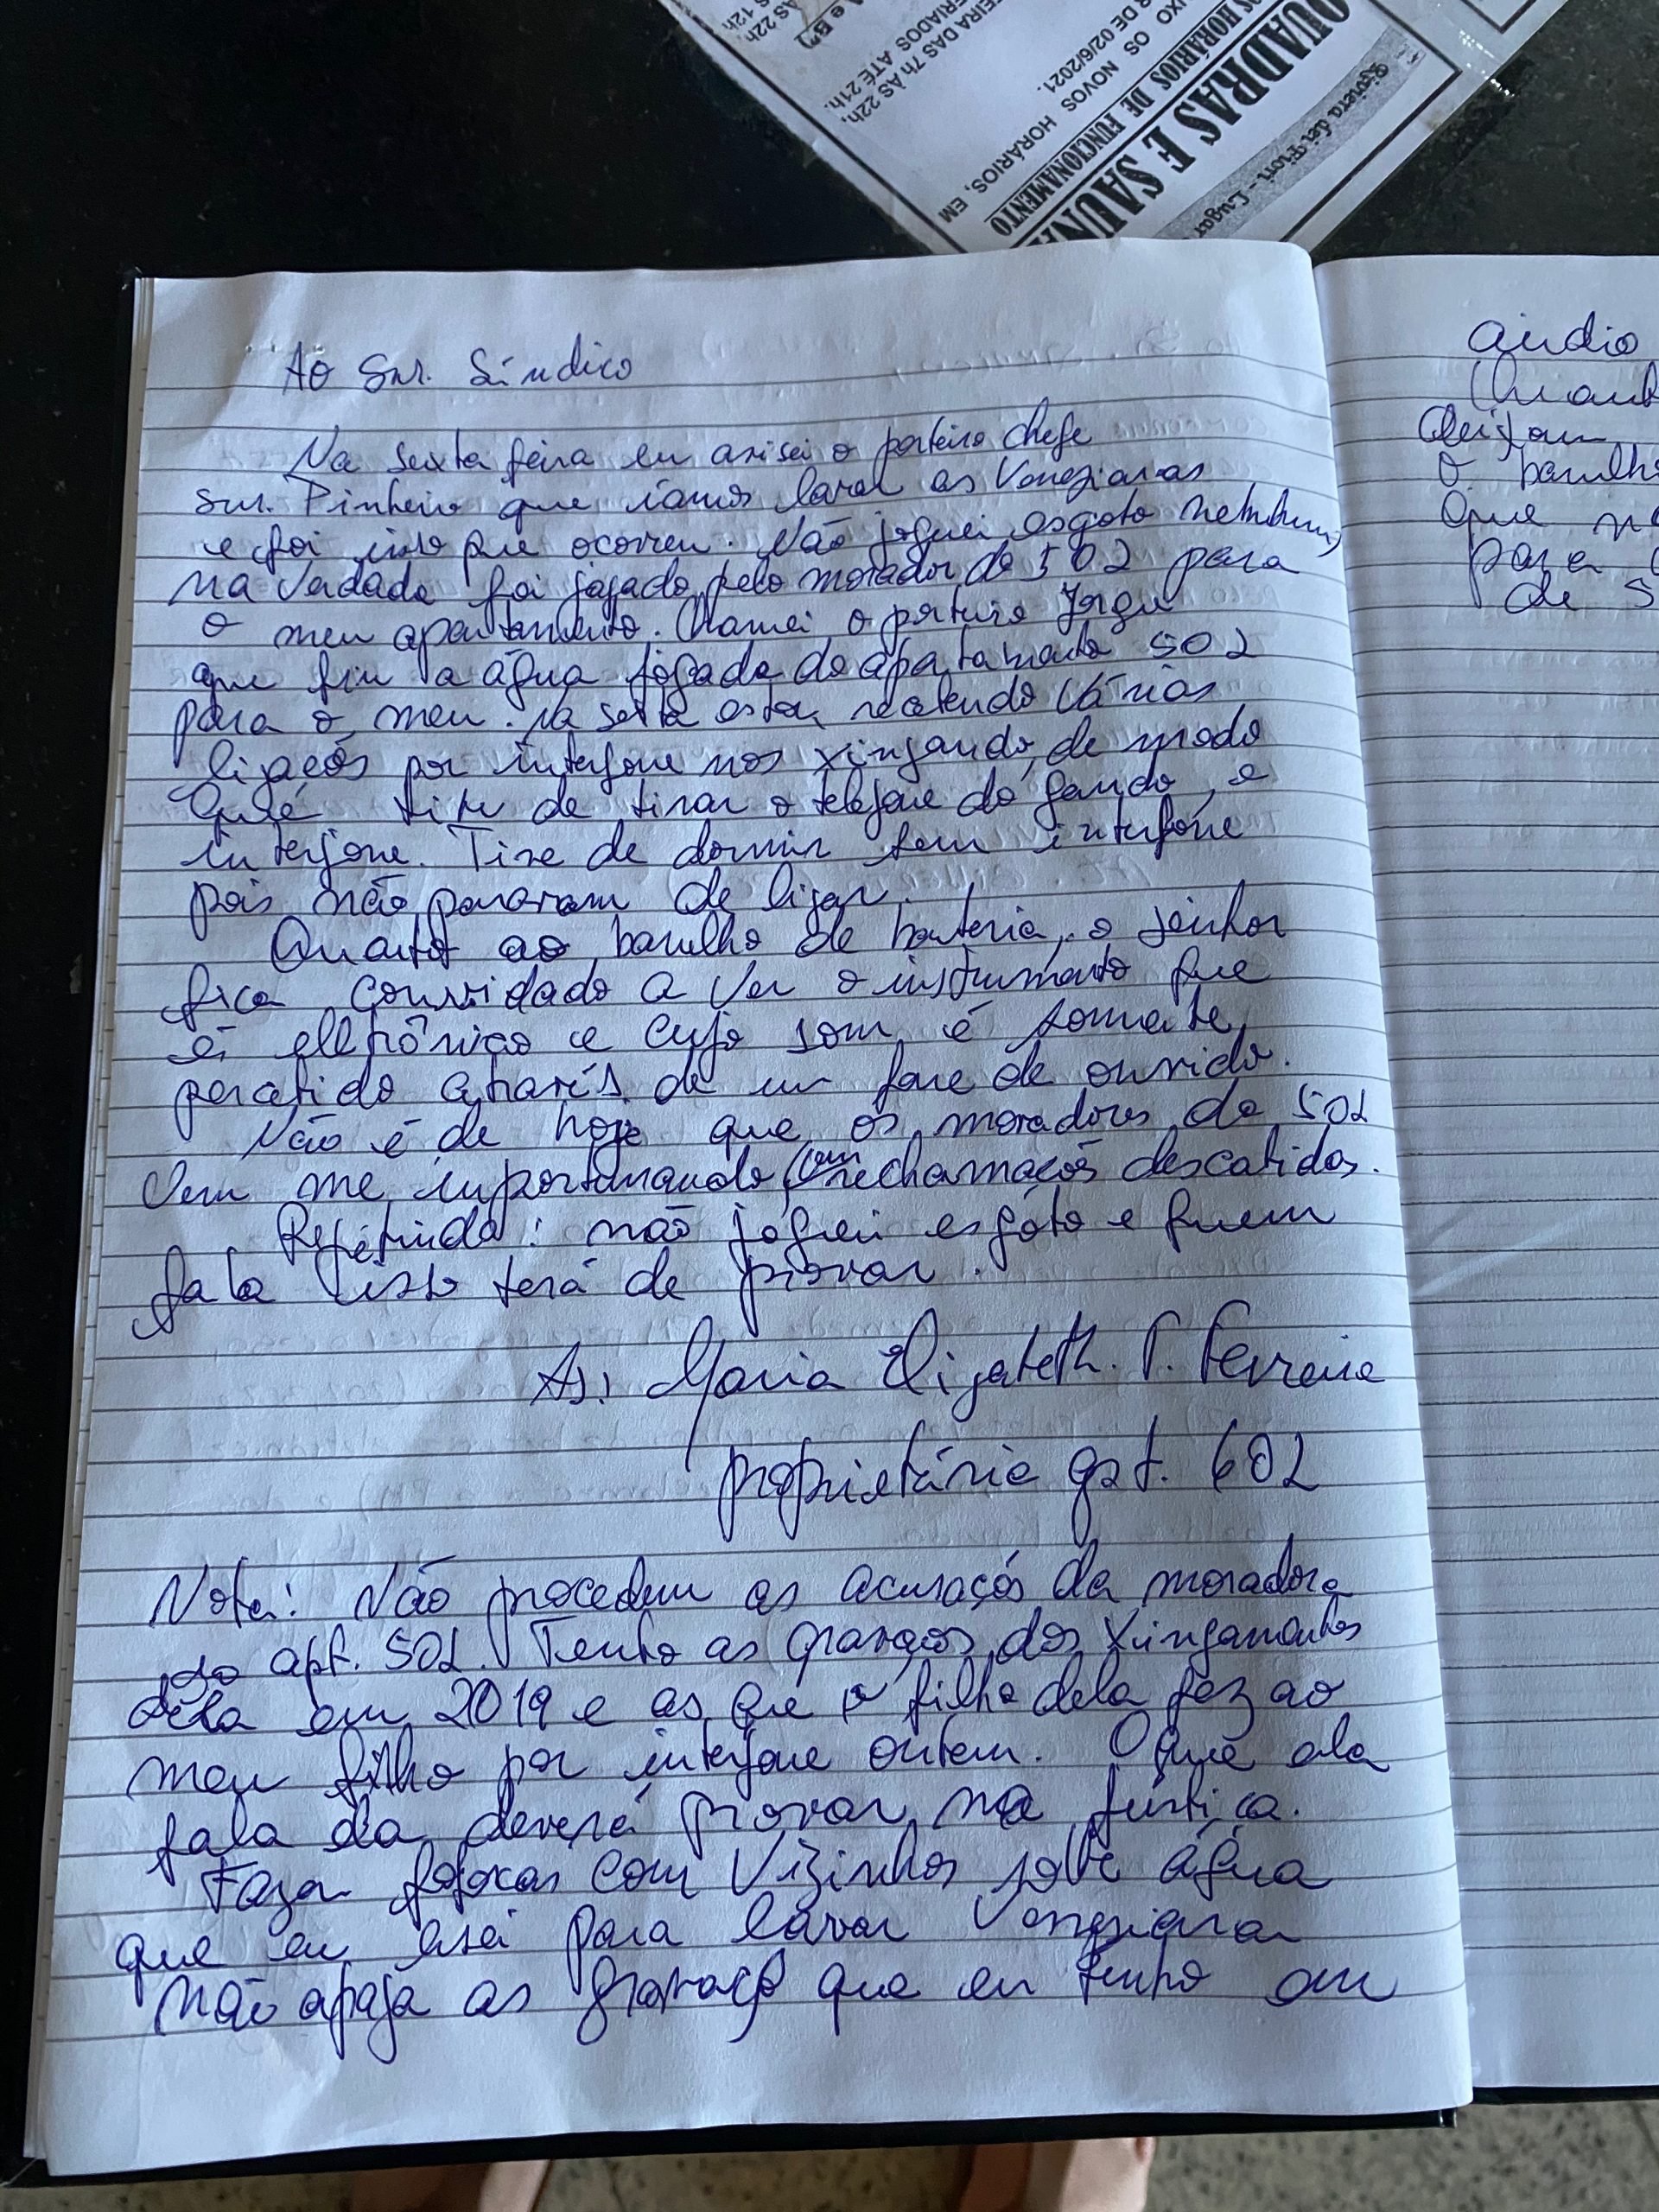 QUADRAS E SAUNA
OS HORÁRIOS DE FUNCIONAMENTO
OS NOVOS HORÁRIOS, EM
DE 02/6/2021.
EIRA DAS 7h ÀS 22h,
ERIADOS ATÉ 21h.
ÀS 22h,
12h
Riviera dei Fiori - Lugar
Ao Snr. Síndico
Na sexta feira eu avisei o porteiro chefe
Snr. Pinheiro que íamos lavar as Venezianas
e foi isso que ocorreu. Não joguei esgoto nenhum,
na verdade foi jogado pelo morador do 502 para
o meu apartamento. Chamei o porteiro Jorge
que viu a água jogada do apartamento 502
para o meu. Na sexta estou recebendo várias
ligaçõs por interfone nos xingando, de modo
que tive de tirar o telefone do gancho, o
interfone. Tive de dormir sem interfone
pois não pararam de ligar.
Quanto ao barulho de bateria, o senhor
fica convidado a ver o instrumento que
é eletrônico e cujo som é somente
percebido através de um fone de ouvido.
Não é de hoje que os moradores do 502
vem me importunando com rechamaçõs descabidas.
Repetindo: não joguei esgoto e quem
fala isso terá de provar.
As. Maria Elizabeth. P. Ferreira
proprietária apt. 602
Nota: Não procedem as acusaçõs da moradora
do apt. 502. Tenho as gravaçõs dos xingamentos
dela em 2019 e as que o filho dela fez ao
meu filho por interfone ontem. O que ela
fala ela deverá provar na justiça.
Fazer fofocas com vizinhos sobre água
que eu usei para lavar Veneziana
não apaga as gravaçõ que eu tenho em
áudio
Deixam
o barulho
que
para
de